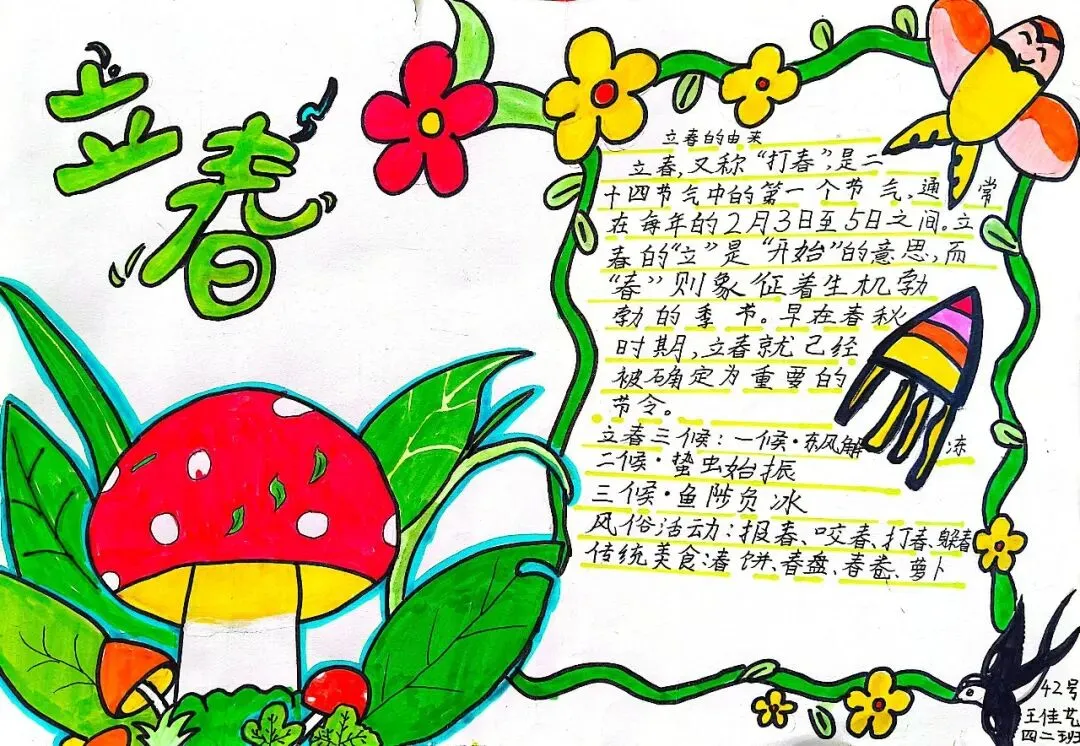 立春
立春的由来
立春,又称“打春”,是二
十四节气中的第一个节气,通常
在每年的2月3日至5日之间。立
春的“立”是“开始”的意思,而
“春”则象征着生机勃
勃的季节。早在春秋
时期,立春就已经
被确定为重要的
节令。
立春三候:一候·东风解冻
二候·蛰虫始振
三候·鱼陟负冰
风俗活动:报春、咬春、打春、躲春
传统美食:春饼、春盘、春卷、萝卜
42号
王佳艺
四二班